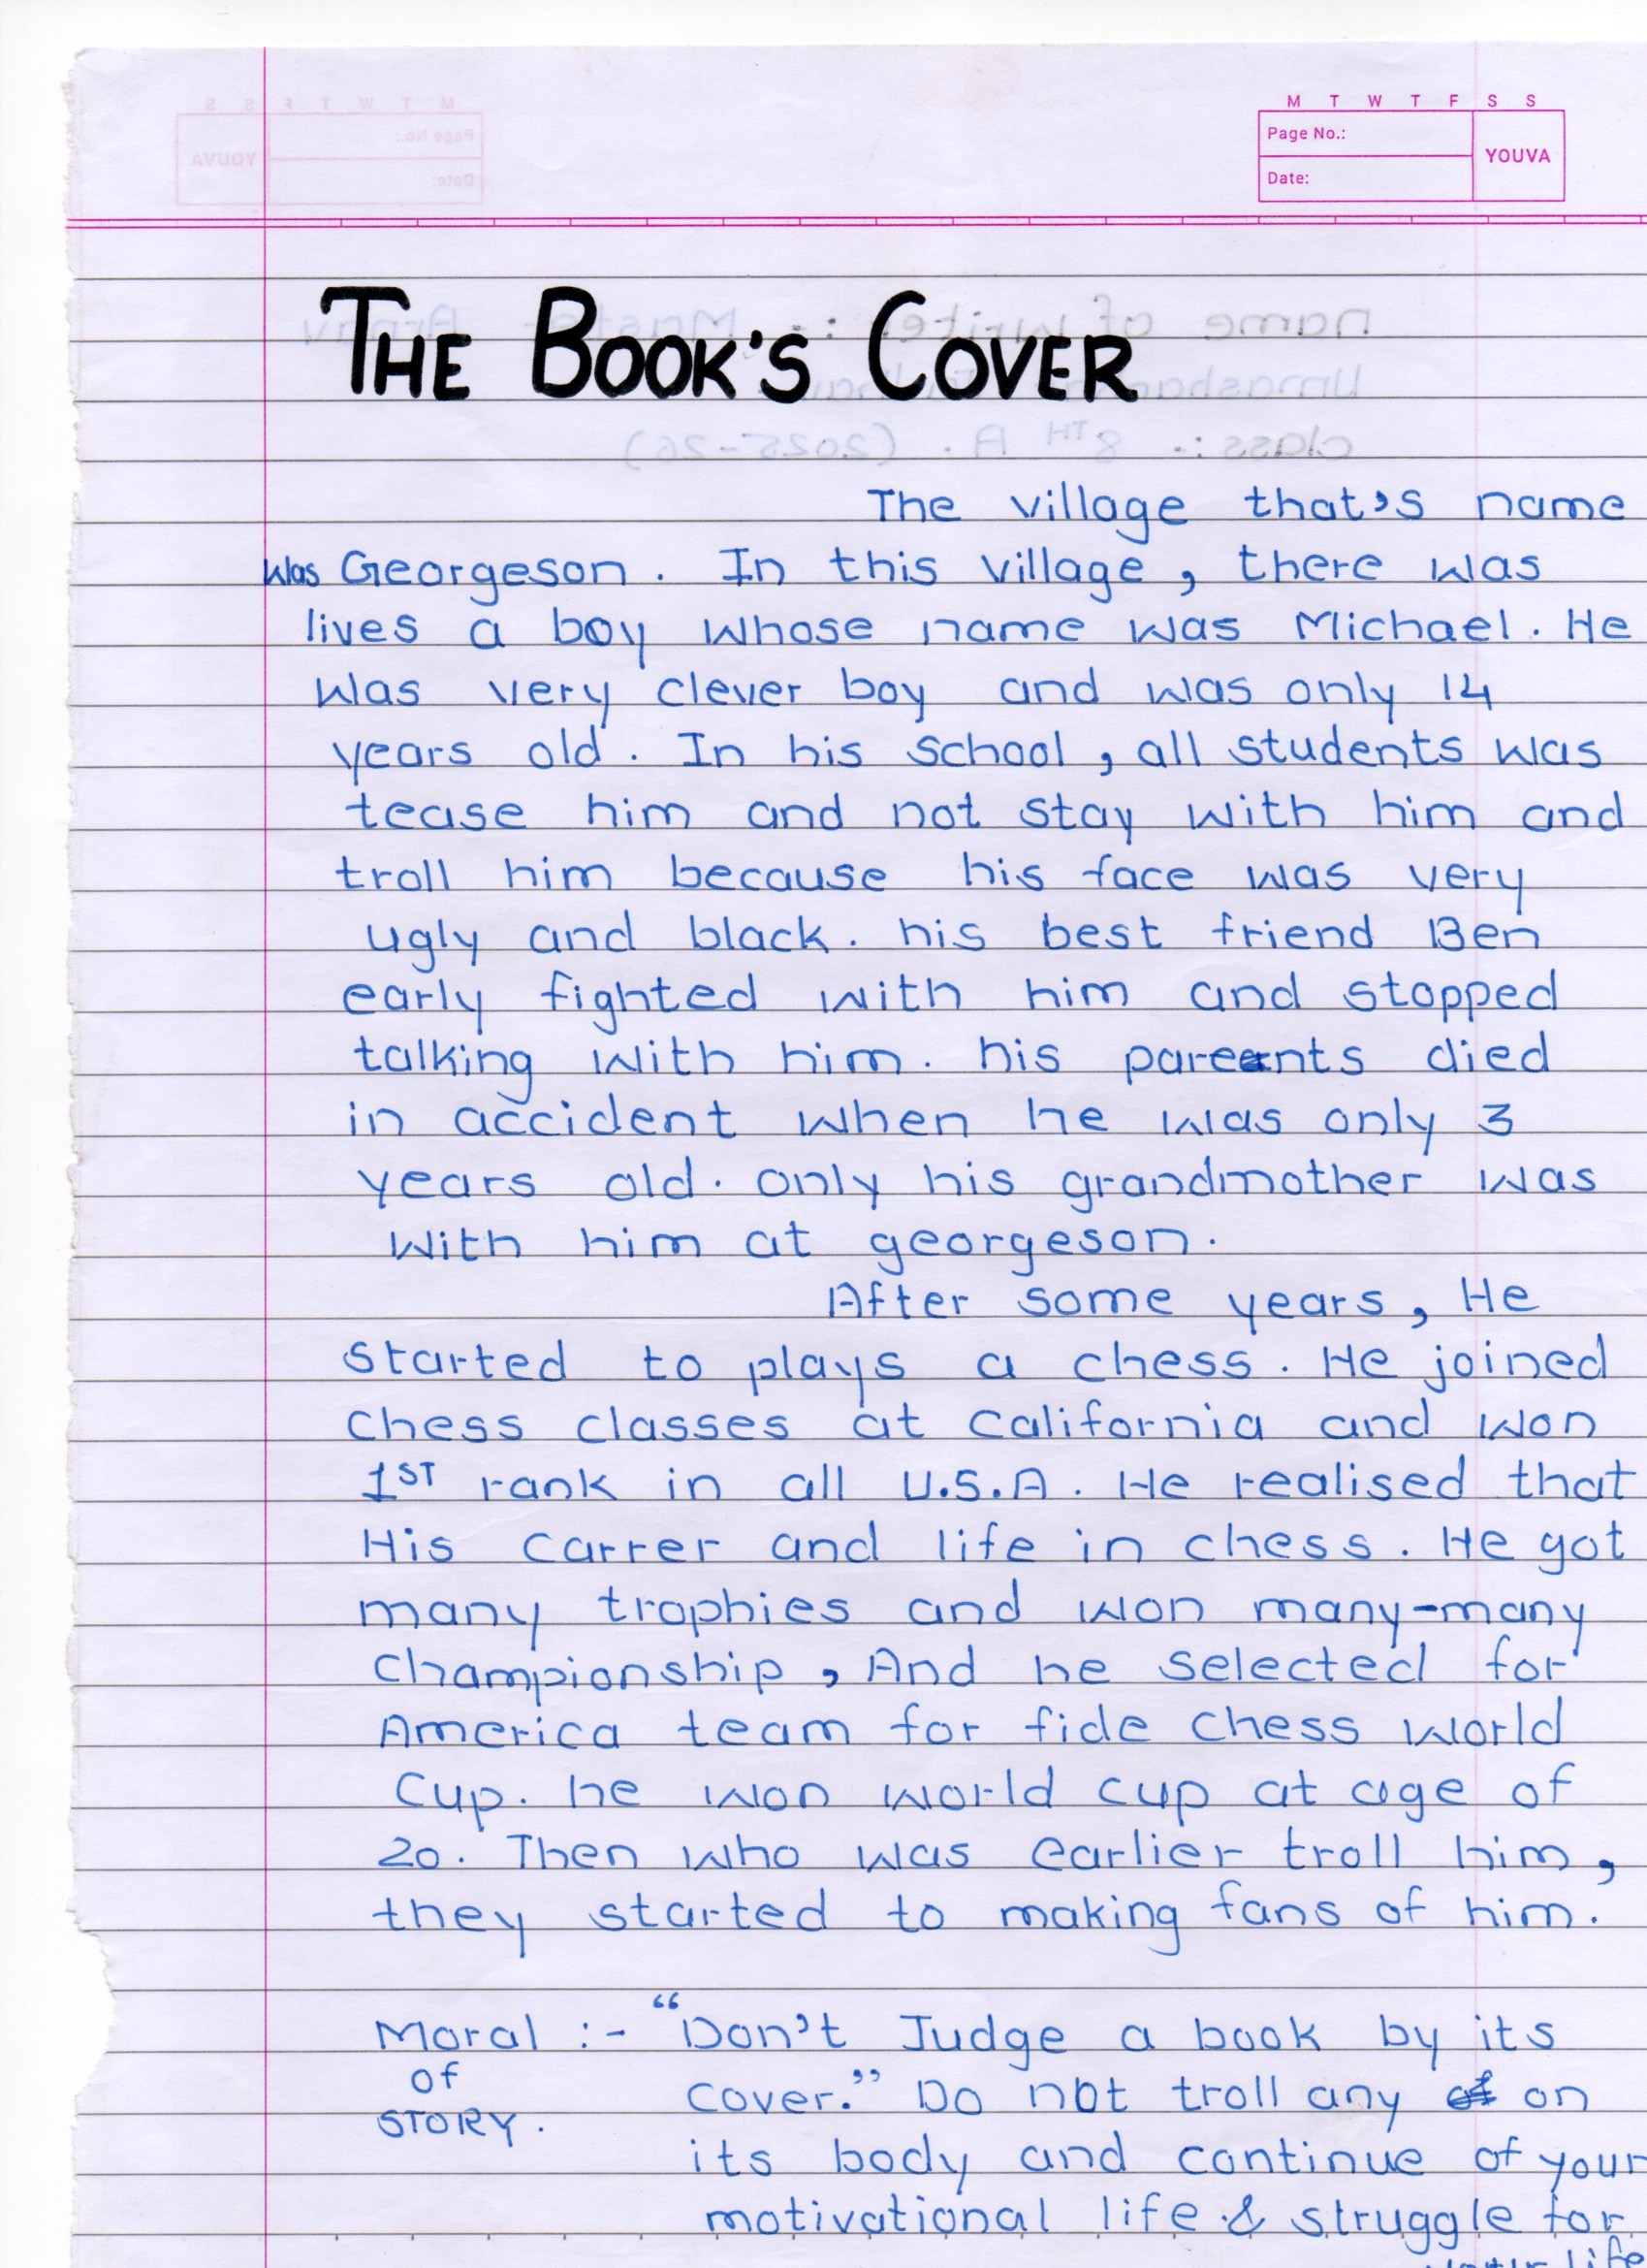 M T W T F S S
Page No.:
YOUVA
Date:
THE BOOK'S COVER
name of writer :- Master Arnav
class :- 8TH A. (2025-26)
The village that's name
was Georgeson. In this village, there was
lives a boy whose name was Michael. He
was very clever boy and was only 14
years old. In his school, all students was
tease him and not stay with him and
troll him because his face was very
ugly and black. his best friend Ben
early fighted with him and stopped
talking with him. his parents died
in accident when he was only 3
years old. only his grandmother was
with him at georgeson.
After some years, He
started to plays a chess. He joined
chess classes at California and won
1ST rank in all U.S.A. He realised that
His carrer and life in chess. He got
many trophies and won many-many
championship, And he selected for
America team for fide chess world
cup. he won world cup at age of
20. Then who was earlier troll him,
they started to making fans of him.
Moral :- "Don't Judge a book by its
of
cover." Do not troll any on
STORY.
its body and continue of your
motivational life & struggle for
life